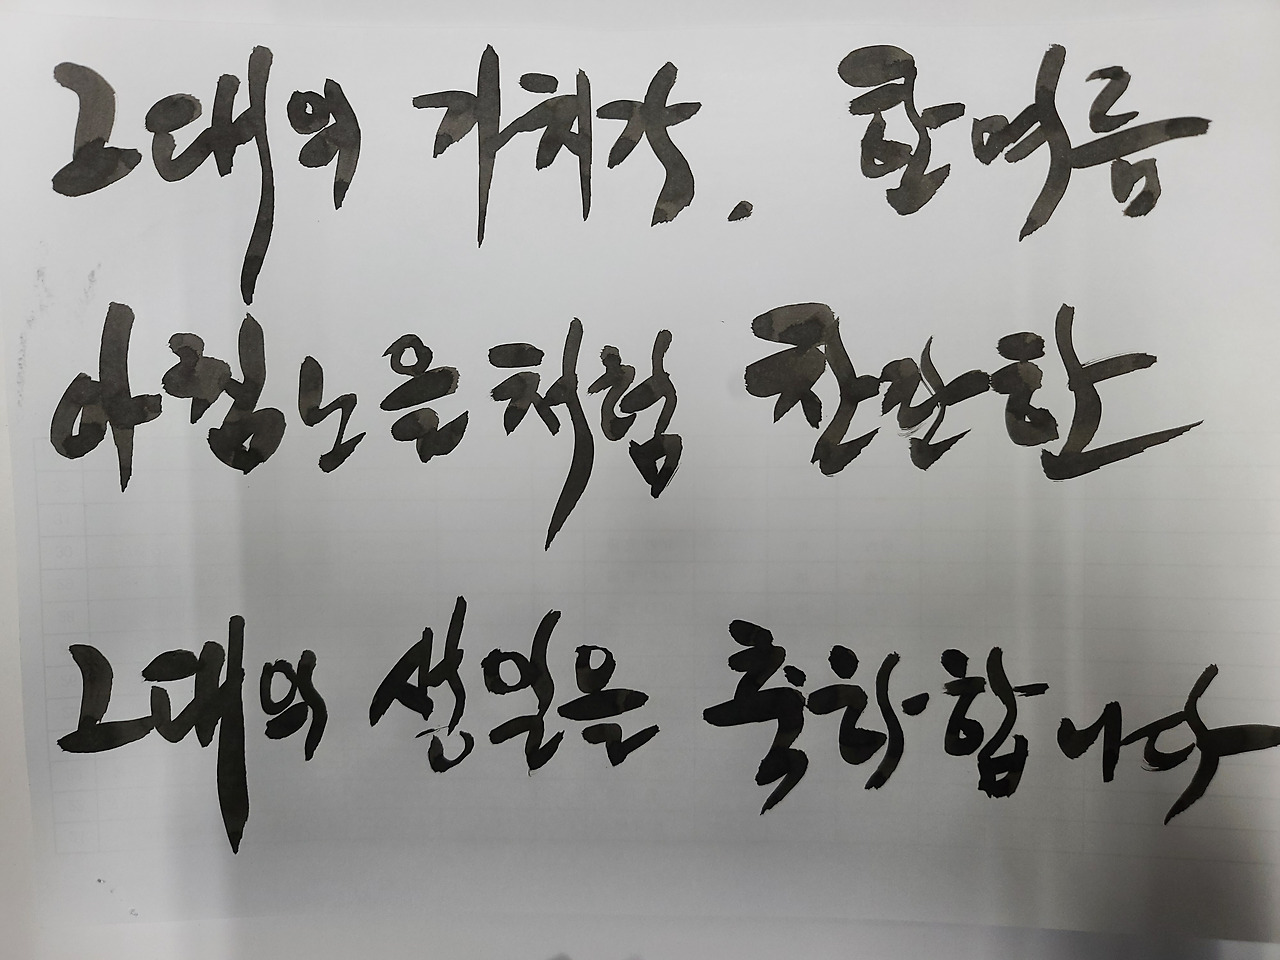 그대의 가치가. 한여름
아침노을처럼 찬란한
그대의 생일을 축하합니다